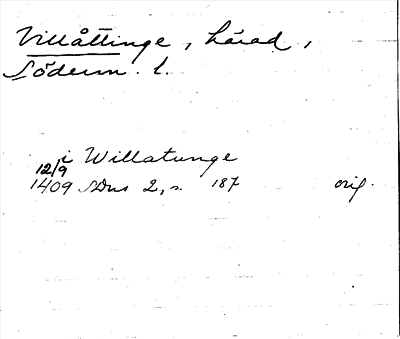 Villåttinge, härad,
Söderm. l.
i Willatunge
12/9
1409 SDns 2, s. 187 orig.